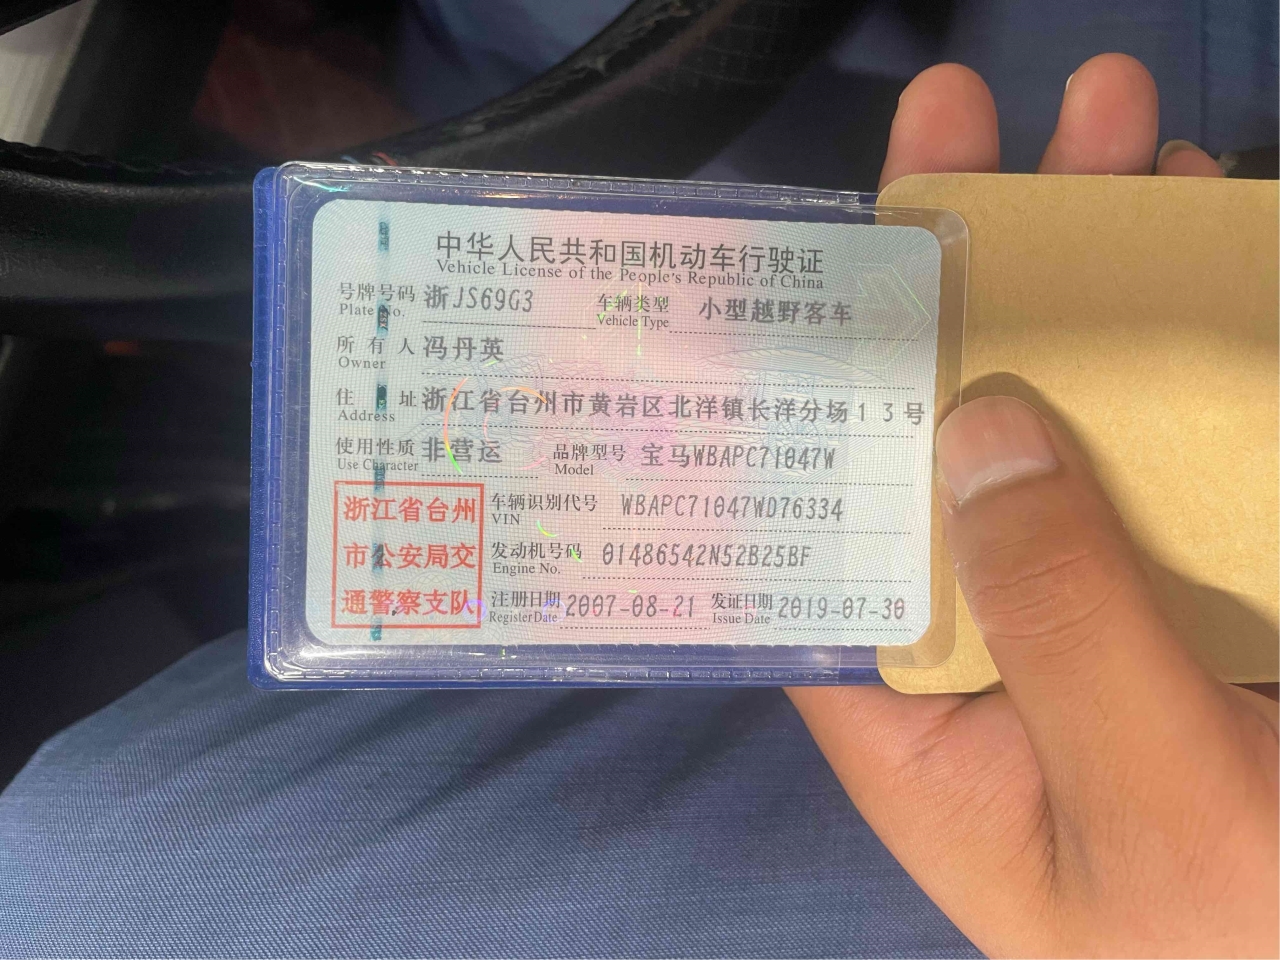 中华人民共和国机动车行驶证
Vehicle License of the People's Republic of China
号牌号码 浙JS69G3 车辆类型 小型越野客车
Plate No. Vehicle Type
所有人 冯丹英
Owner
住址 浙江省台州市黄岩区北洋镇长洋分场13号
Address
使用性质 非营运 品牌型号 宝马WBAPC71047W
Use Character Model
浙江省台州 车辆识别代号 WBAPC71047WD76334
VIN
市公安局交 发动机号码 01486542N52B25BF
Engine No.
通警察支队 注册日期 2007-08-21 发证日期 2019-07-30
Register Date Issue Date